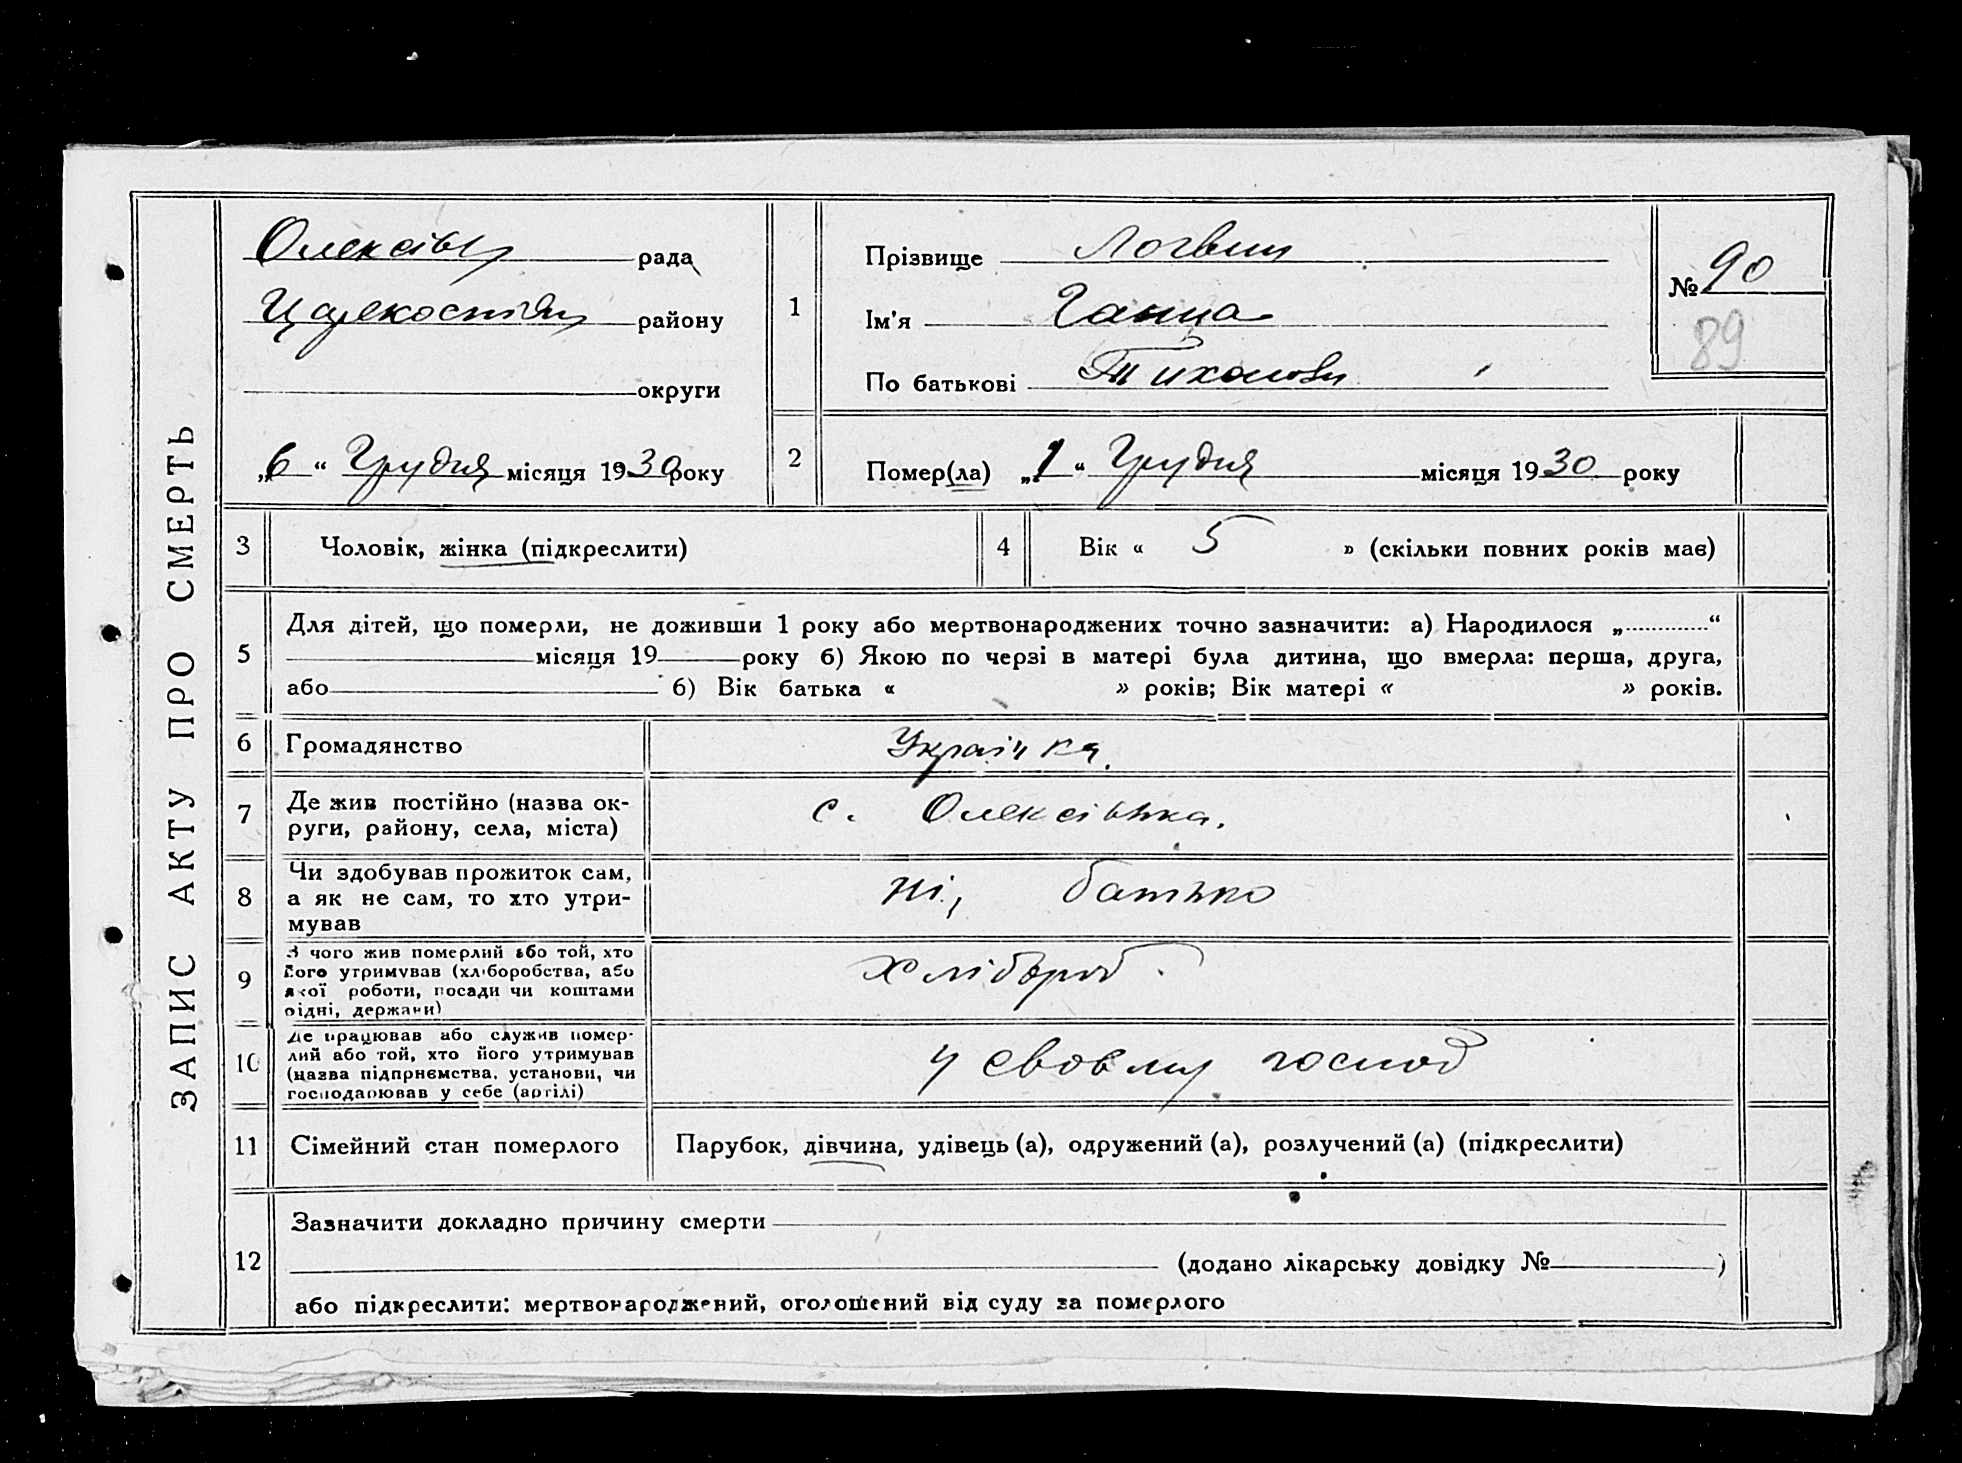 ЗАПИС АКТУ ПРО СМЕРТЬ
Олексіїв рада
району
округи
„6“ Грудня місяця 1930 року
1
Прізвище Логвин
Ім'я Ганна
По батькові Тихонови
№ 90
89
2
Помер(ла) „1“ Грудня місяця 1930 року
3 Чоловік, жінка (підкреслити)
4 Вік « 5 » (скільки повних років має)
5
Для дітей, що померли, не доживши 1 року або мертвонароджених точно зазначити: а) Народилося „ “
місяця 19 року б) Якою по черзі в матері була дитина, що вмерла: перша, друга,
або б) Вік батька « » років; Вік матері « » років.
6 Громадянство Українка.
7 Де жив постійно (назва ок-
руги, району, села, міста)
с. Олексіївка.
8
Чи здобував прожиток сам,
а як не сам, то хто утри-
мував
ні, батько
9
З чого жив померлий або той, хто
його утримував (хліборобства, або
якої роботи, посади чи коштами
рідні, держави)
Хлібороб.
10
Де працював або служив помер-
лий або той, хто його утримував
(назва підприємства, установи, чи
господарював у себе (артілі)
у своєму господ
11 Сімейний стан померлого Парубок, дівчина, удівець (а), одружений (а), розлучений (а) (підкреслити)
12
Зазначити докладно причину смерти
(додано лікарську довідку № )
або підкреслити: мертвонароджений, оголошений від суду за померлого